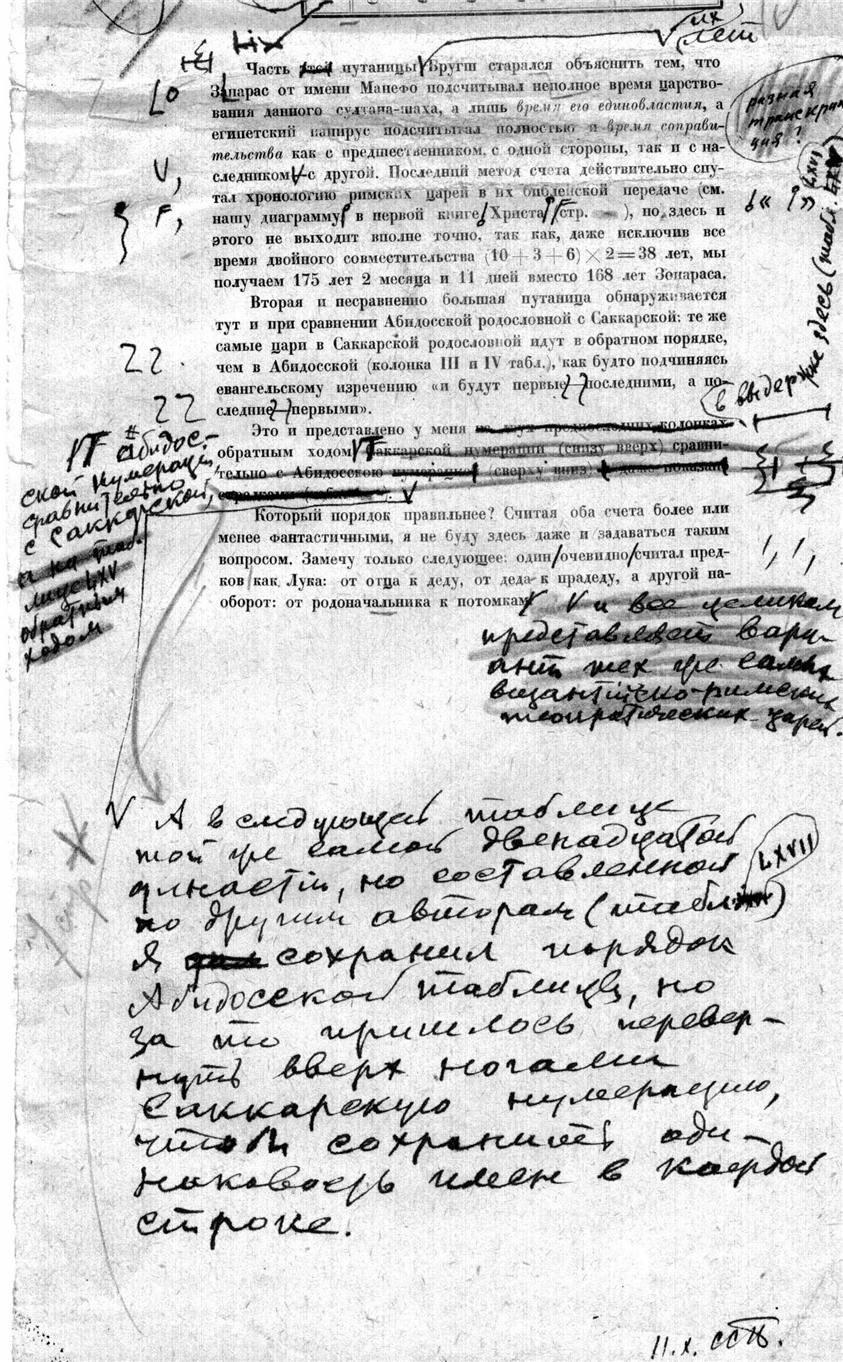 их
лет
Часть этой путаницы Бругш старался объяснить тем, что
Зонарас от имени Манефо подсчитывал неполное время царство-
вания данного султана-шаха, а лишь время его единовластия, а
египетский папирус подсчитывал полностью и время соправи-
тельства как с предшественником, с одной стороны, так и с на-
следником с другой. Последний метод счета действительно спу-
тал хронологию римских царей в их библейской передаче (см.
нашу диаграмму в первой книге Христа, стр. ), но здесь и
этого не выходит вполне точно, так как, даже исключив все
время двойного совместительства (10+3+6)×2=38 лет, мы
получаем 175 лет 2 месяца и 11 дней вместо 168 лет Зонараса.
Вторая и несравненно большая путаница обнаруживается
тут и при сравнении Абидосской родословной с Саккарской: те же
самые цари в Саккарской родословной идут в обратном порядке,
чем в Абидосской (колонка III и IV табл.), как будто подчиняясь
евангельскому изречению «и будут первые последними, а по-
следние первыми».
Это и представлено у меня на двух предпоследних колонках
обратным ходом Саккарской нумерации (снизу вверх) сравни-
тельно с Абидосскою нумерацией (сверху вниз) и даже показано
стрелками
Который порядок правильнее? Считая оба счета более или
менее фантастичными, я не буду здесь даже и задаваться таким
вопросом. Замечу только следующее: один очевидно считал пред-
ков как Лука: от отца к деду, от деда к прадеду, а другой на-
оборот: от родоначальника к потомкам
разная
транскрип
ция?
LXVI
здесь (табл.
в выдержке
Абидос-
ской нумерации
сравнительно
с Саккарской,
а на таб-
лице LXV
обратным
ходом
V и все целиком
представляет вари-
ант тех же самых
византийско-римских
теократических царей.
V А в следующей таблице
той же самой двенадцатой
династии, но составленной
по другим авторам (табл. LXVII)
я сохранил порядок
Абидосской таблицы, но
за то пришлось перевер-
нуть вверх ногами
Саккарскую нумерацию,
чтоб сохранить оди-
наковость имен в каждой
строке.
11.x.